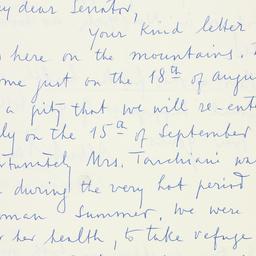 y dear Senator,
Your kind letter
s here on the mountains.
me just on the 18th of augu
a pity that we will re-ente
ly on the 15th of September
rtunately Mrs. Tarchiani wa
during the very hot period
oman Summer. We were
r her health, to take refuge